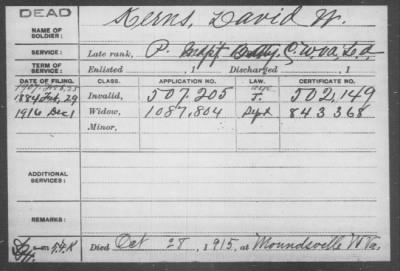 DEAD
Kerns, David W.
NAME OF SOLDIER:
SERVICE: Late rank, P. Batty C. W Va. L.A.
TERM OF SERVICE: Enlisted , 1 Discharged , 1
DATE OF FILING. CLASS. APPLICATION NO. LAW. CERTIFICATE NO.
1907
1884 Feb, 29 Invalid, 507.205 J. 502,149
1916 Dec 1 Widow, 1087,804 843368
Minor,
ADDITIONAL SERVICES:
REMARKS:
Died Oct 27, 1915, at Moundsville W Va.